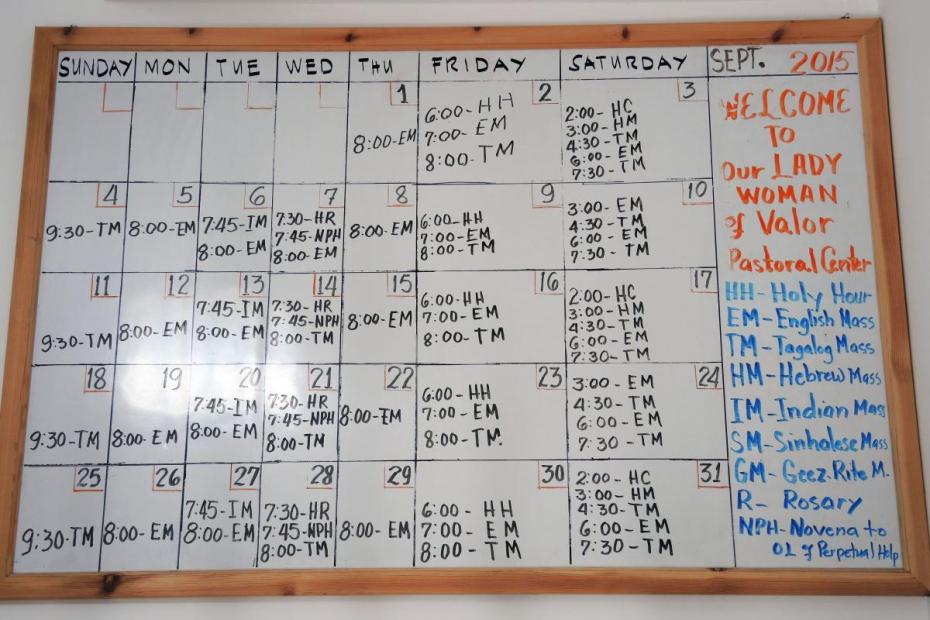 SUNDAY MON TUE WED THU FRIDAY SATURDAY
1
8:00-EM
2
6:00-HH
7:00-EM
8:00-TM
3
2:00-HC
3:00-HM
4:30-TM
6:00-EM
7:30-TM
4
9:30-TM
5
8:00-EM
6
7:45-IM
8:00-EM
7
7:30-HR
7:45-NPH
8:00-EM
8
8:00-EM
9
6:00-HH
7:00-EM
8:00-TM
10
3:00-EM
4:30-TM
6:00-EM
7:30-TM
11
9:30-TM
12
8:00-EM
13
7:45-IM
8:00-EM
14
7:30-HR
7:45-NPH
8:00-TM
15
8:00-EM
16
6:00-HH
7:00-EM
8:00-TM
17
2:00-HC
3:00-HM
4:30-TM
6:00-EM
7:30-TM
18
9:30-TM
19
8:00-EM
20
7:45-IM
8:00-EM
21
7:30-HR
7:45-NPH
8:00-TM
22
8:00-EM
23
6:00-HH
7:00-EM
8:00-TM.
24
3:00-EM
4:30-TM
6:00-EM
7:30-TM
25
9:30-TM
26
8:00-EM
27
7:45-IM
8:00-EM
28
7:30-HR
7:45-NPH
8:00-TM
29
8:00-EM
30
6:00-HH
7:00-EM
8:00-TM
31
2:00-HC
3:00-HM
4:30-TM
6:00-EM
7:30-TM
SEPT. 2015
WELCOME
TO
Our LADY
WOMAN
of Valor
Pastoral Center
HH-Holy Hour
EM-English Mass
TM-Tagalog Mass
HM-Hebrew Mass
IM-Indian Mass
SM-Sinhalese Mass
GM-Geez-Rite M.
R-Rosary
NPH-Novena to
OL of Perpetual Help